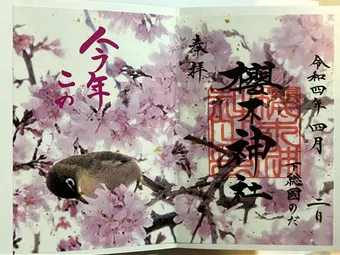 令和四年 四月 二日
下総国のだ
奉拝
櫻木神社
今年
この